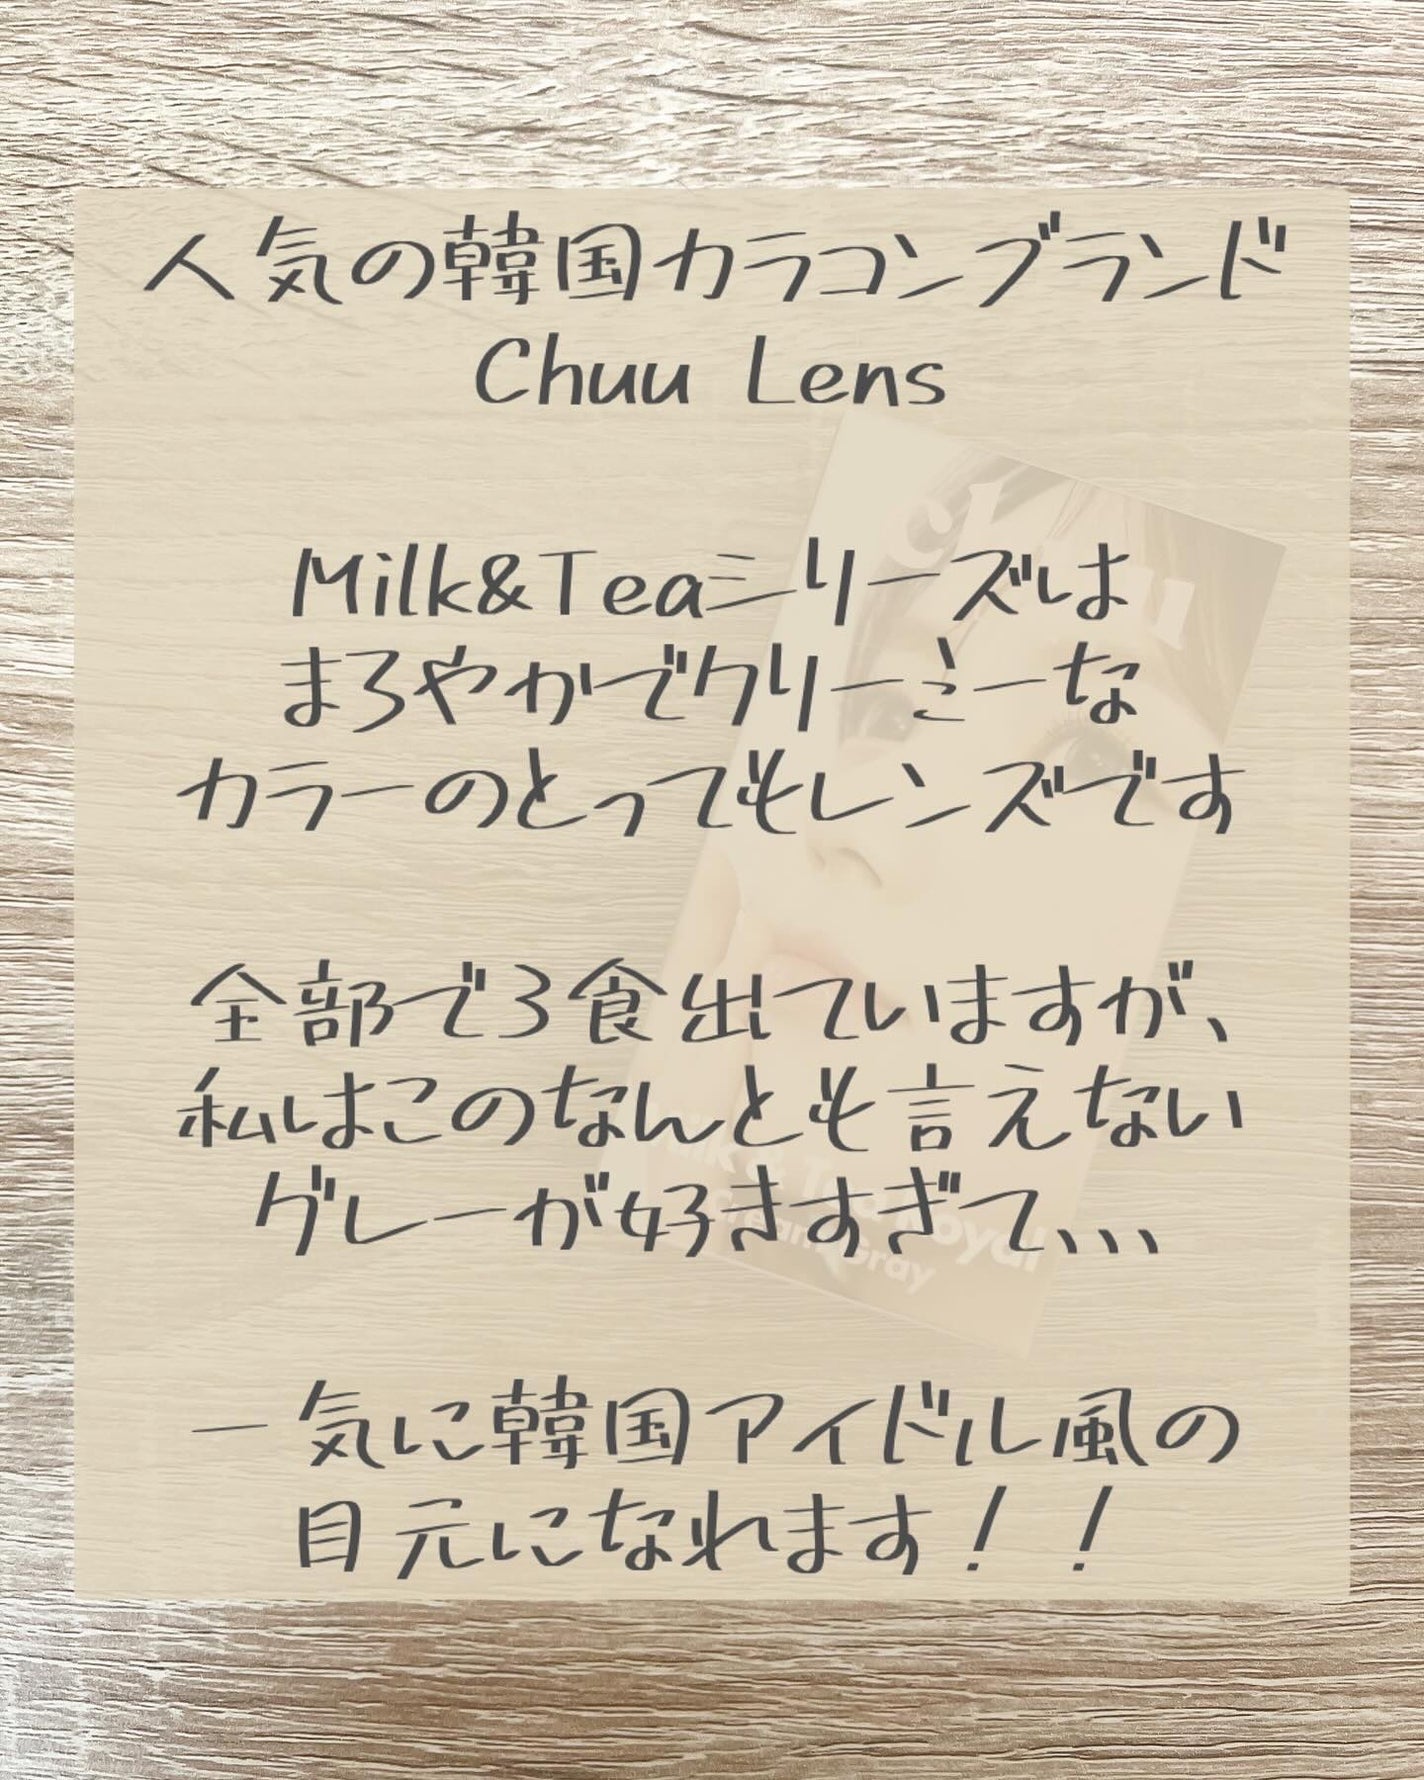 人気の韓国カラコンブランド
Chuu Lens
Milk&Teaシリーズは
まろやかでクリーミーな
カラーのとってもレンズです
全部で3食出ていますが、
私はこのなんとも言えない
グレーが好きすぎて、、、
一気に韓国アイドル風の
目元になれます！！
chuu
Milk & Tea Royal
Cream Gray